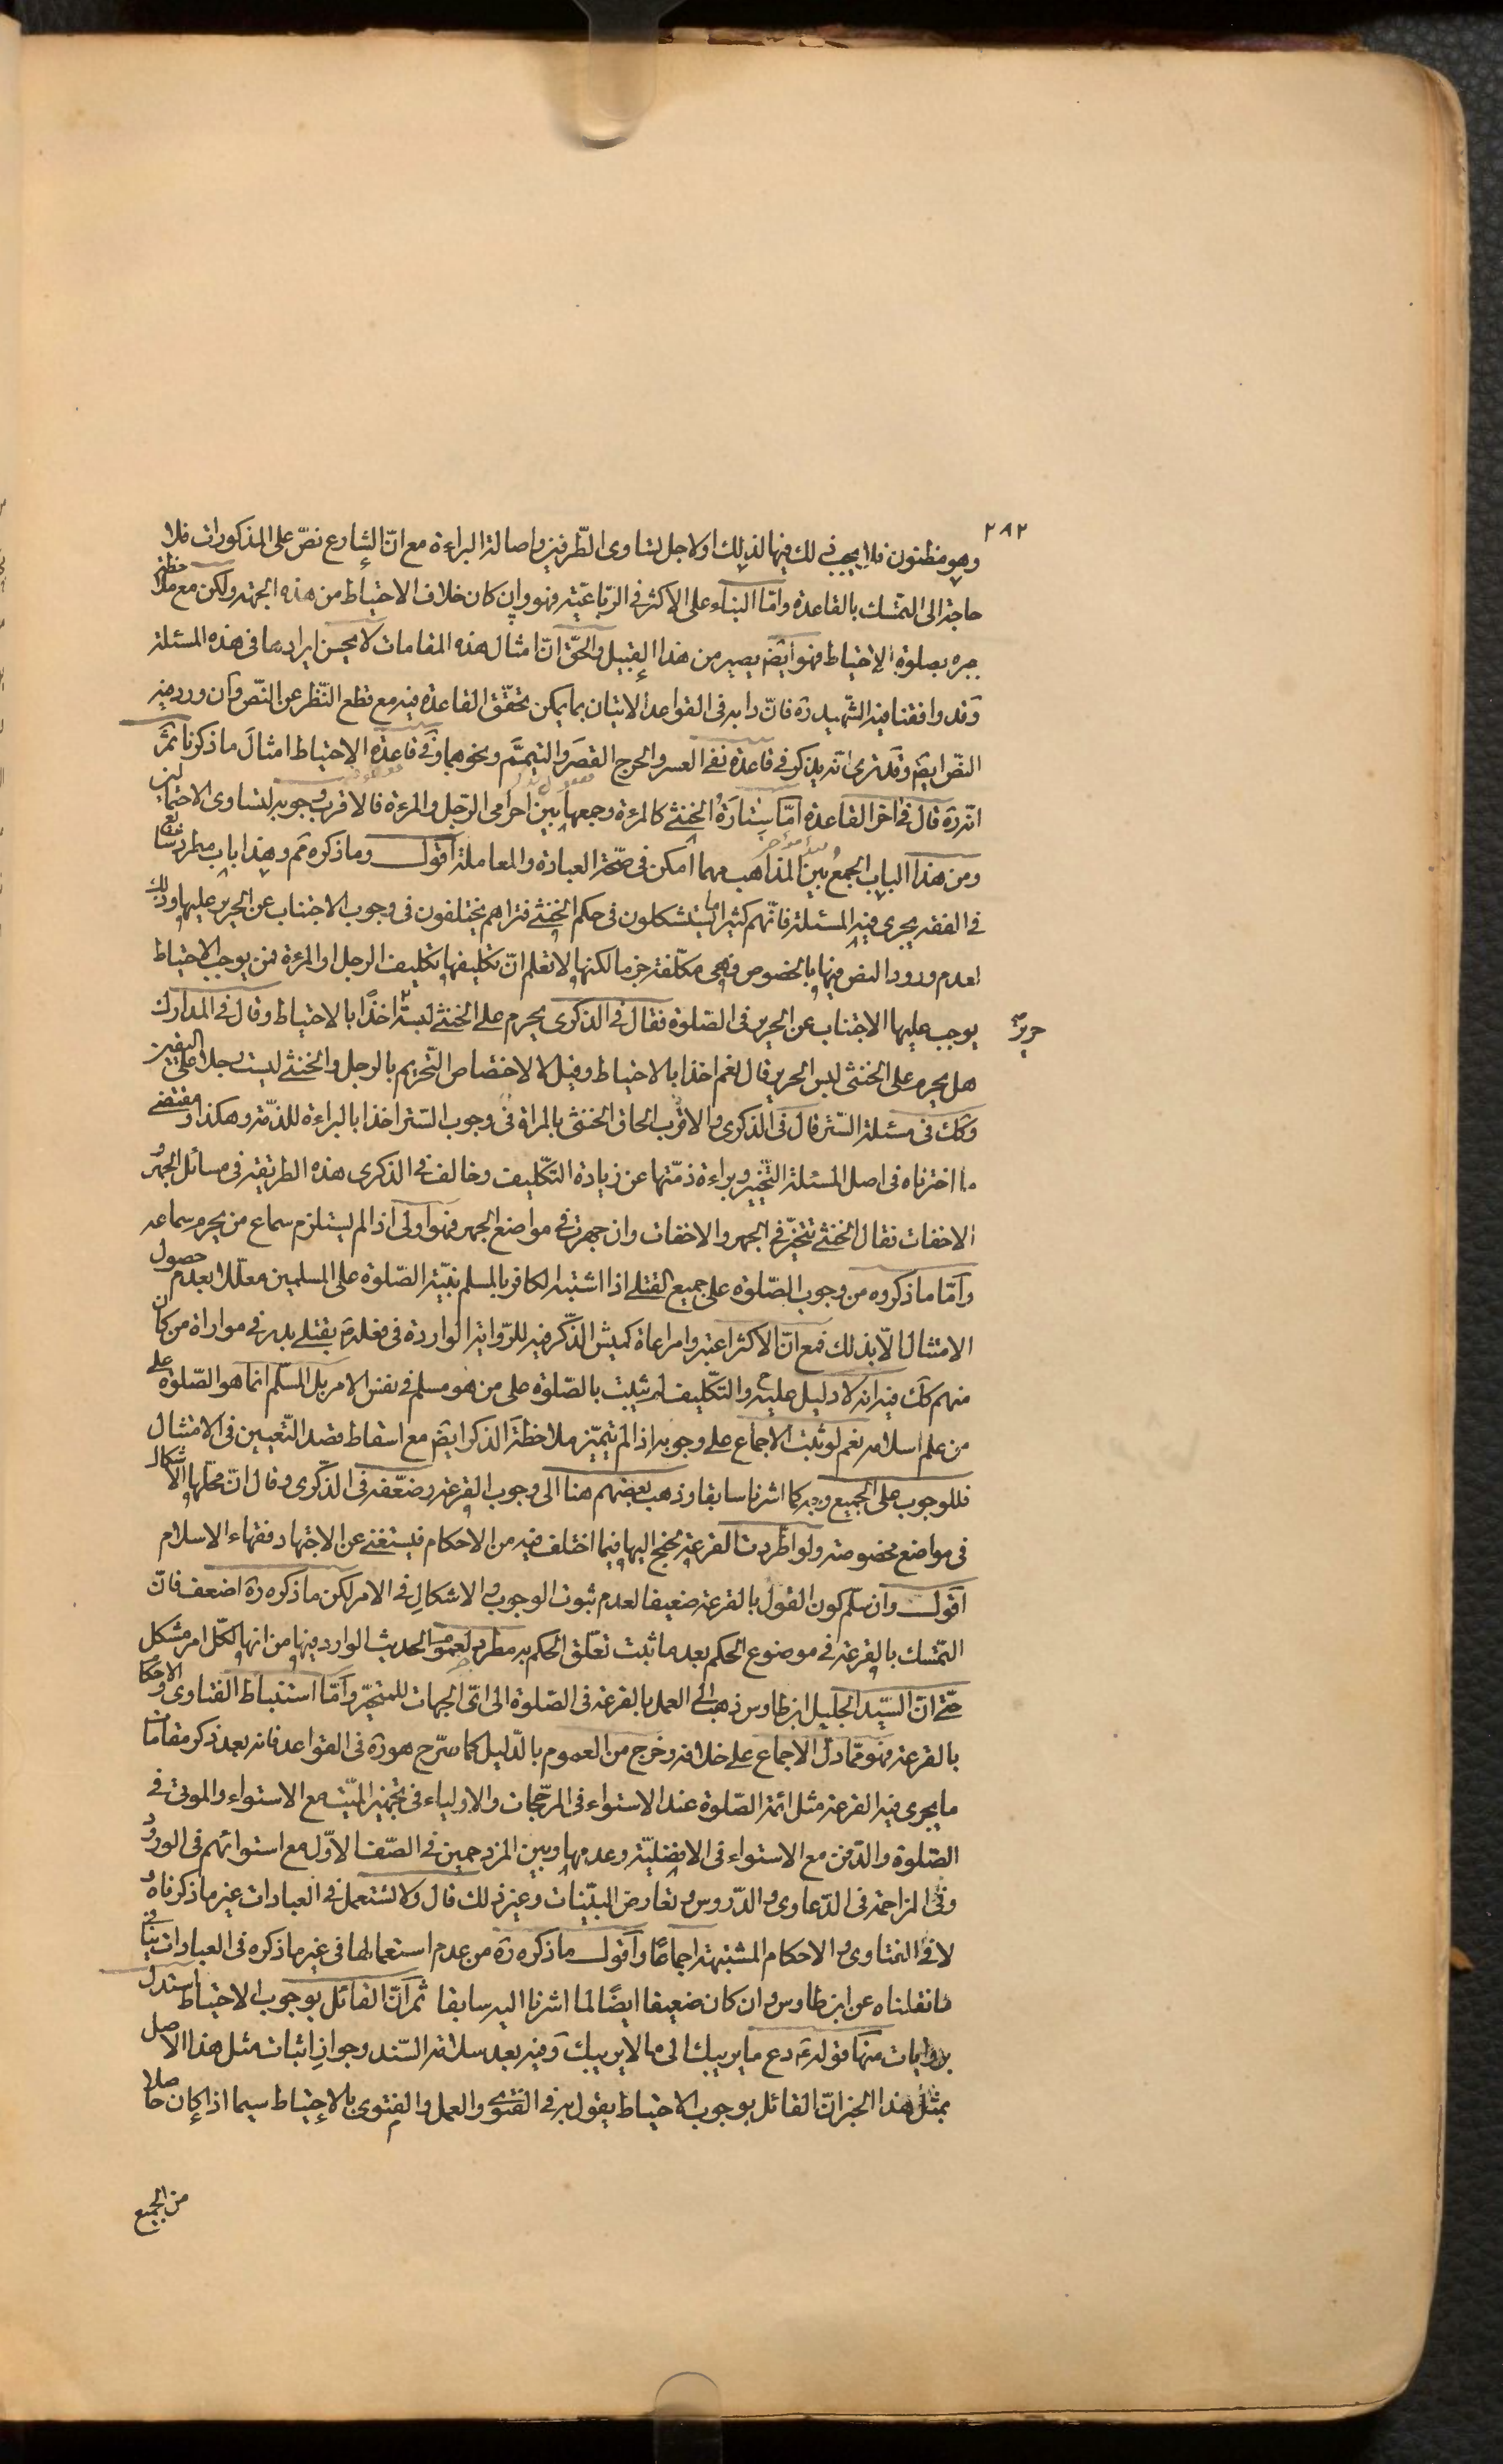 ٢٨٢
وهو مظنون فلا يجب في لك فيها لذلك او لاجل تساوى الطّرفين واصالة البراءة مع انّ الشارع نصّ على المذكورات فلا
حاجة الى التمسّك بالقاعدة وامّا البناء على الاكثر فى الرّباعيّة فهو وان كان خلاف الاحتياط من هذه الجهة ولكن مع ملاحظة
جبره بصلوة الاحتياط فهو ايضً يصير من هذا القبيل والحقّ انّ امثال هذه المقامات لا يحسن ايرادها فى هذه المسئلة
وقد وافقنا فيه الشّهيد ره فانّ دابه فى القواعد الاتيان بما يمكن تحقّق القاعدة فيه مع قطع النّظر عن النّص وان ورد فيه
النّص ايضً وقد ترى انّه يذكر فى قاعدة نفى العسر والحرج القصر والتيمّم ونحوهما وفى قاعدة الاحتياط امثال ما ذكرنا ثمّ
انّه ره قال فى اخر القاعدة امّا ستارة الخنثى كالمرءة وجمعها بين احرامى الرّجل والمرءة فالاقرب وجوبه لتساوى الاحتمالين
ومن هذا الباب الجمع بين المذاهب مهما امكن فى صحّة العبادة والمعاملة اقول وما ذكره ثم وهذا باب مطرد شايع
فى الفقه يجرى فيه المسئلة فانّهم كثيرا ما يستشكلون فى حكم الخنثى فتراهم يختلفون فى وجوب الاجتناب عن الحرير عليها وذلك
لعدم ورود النص فيها بالخصوص وهى مكلّفة جزما لكنها لا تعلم انّ تكليفها تكليف الرجل او المرءة فمن يوجب الاحتياط
يوجب عليها الاجتناب عن الحرير فى الصّلوة فقال فى الذكرى يحرم على الخنثى لبسه اخذًا بالاحتياط وقال فى المدارك
هل يحرم على الخنثى لبس الحرير قال نعم اخذا بالاحتياط وقيل لا لاختصاص التّحريم بالرجل والخنثى ليست رجلا على اليقين
وكك فى مسئلة السّتر قال فى الذكرى والاقرب الحاق الخنثى بالمراة فى وجوب السّتر اخذا بالبراءة للذمّة وهكذا ومقتضى
ما اخترناه فى اصل المسئلة التّخيير وبراءة ذمّتها عن زيادة التكليف وخالف فى الذكرى هذه الطريقة فى مسائل الجهر و
الاخفات فقال الخنثى تتخيّر فى الجهر والاخفات وان جهرت فى مواضع الجهر فهو اولى اذا لم يستلزم سماع من يحرم سماعه
وامّا ما ذكروه من وجوب الصّلوة على جميع القتلى اذا اشتبه الكافر بالمسلم بنيّة الصّلوة على المسلمين معلّلا بعدم حصول
الامتثال الّا بذلك فمع انّ الاكثر اعتبروا مراعاة كميش الذّكر فيه للرّواية الواردة فى فعله م بقتلى بدر فى مواراة من كان
منهم كك فيه انه لا دليل عليه والتّكليف لم يثبت بالصّلوة على من هو مسلم فى نفس الامر بل المسلّم انما هو الصّلوة على
من علم اسلامه نعم لو ثبت الاجماع على وجوبه اذا لم يتميّز ملاحظة الذكر ايضً مع اسقاط قصد التّعيين فى الامتثال
فللوجوب على الجميع وجه كما اشرنا سابقا وذهب بعضهم هنا الى وجوب القرعة وضعّفه فى الذّكرى وقال انّ محلّها الاشكال
فى مواضع مخصوصة ولو اطّردت القرعة لجنح اليها فيما اختلف فيه من الاحكام فيستغنى عن الاجتهاد فقهاء الاسلام
اقول وان سلّم كون القول بالقرعة ضعيفا لعدم ثبوت الوجوب والاشكال فى الامر لكن ما ذكره ره اضعف فانّ
التّمسّك بالقرعة فى موضوع الحكم بعد ما ثبت تعلّق الحكم به مطرد لعموم الحديث الوارد فيها من انها لكلّ امر مشكل
حتى انّ السيّد الجليل ابن طاوس ذهب الى العمل بالقرعة فى الصّلوة الى اىّ الجهات للمتحيّر وامّا استنباط الفتاوى والاحكام
بالقرعة فهو ممّا دلّ الاجماع على خلافه وخرج من العموم بالدّليل كما صرّح هو ره فى القواعد فانه بعد ذكر مقامات
ما يجرى فيه القرعة مثل ائمة الصّلوة عند الاستواء فى المرجّحات والاولياء فى تجهيز الميّت مع الاستواء والموتى فى
الصّلوة والدّفن مع الاستواء فى الافضليّة وعدمها وبين المزدحمين فى الصّف الاوّل مع استوائهم فى الورود
وفى المزاحمة فى الدّعاوى والدّروس وتعارض البيّنات وغير ذلك قال ولا تستعمل فى العبادات غير ما ذكرناه و
لا فى الفتاوى والاحكام المشتبهة اجماعًا واقول ما ذكره ره من عدم استعمالها فى غير ما ذكره فى العبادات ينافى
ما نقلناه عن ابن طاوس وان كان ضعيفا ايضًا لما اشرنا اليه سابقا ثمّ انّ القائل بوجوب الاحتياط استدل
بروايات منها قوله ع دع ما يريبك الى ما لا يريبك وفيه بعد سلامة السّند وجواز اثبات مثل هذا الاصل
بمثل هذا الخبر انّ القائل بوجوب الاحتياط يقول به فى الفتوى والعمل والفتوى بالاحتياط سيما اذا كان حاصلا
من الجميع